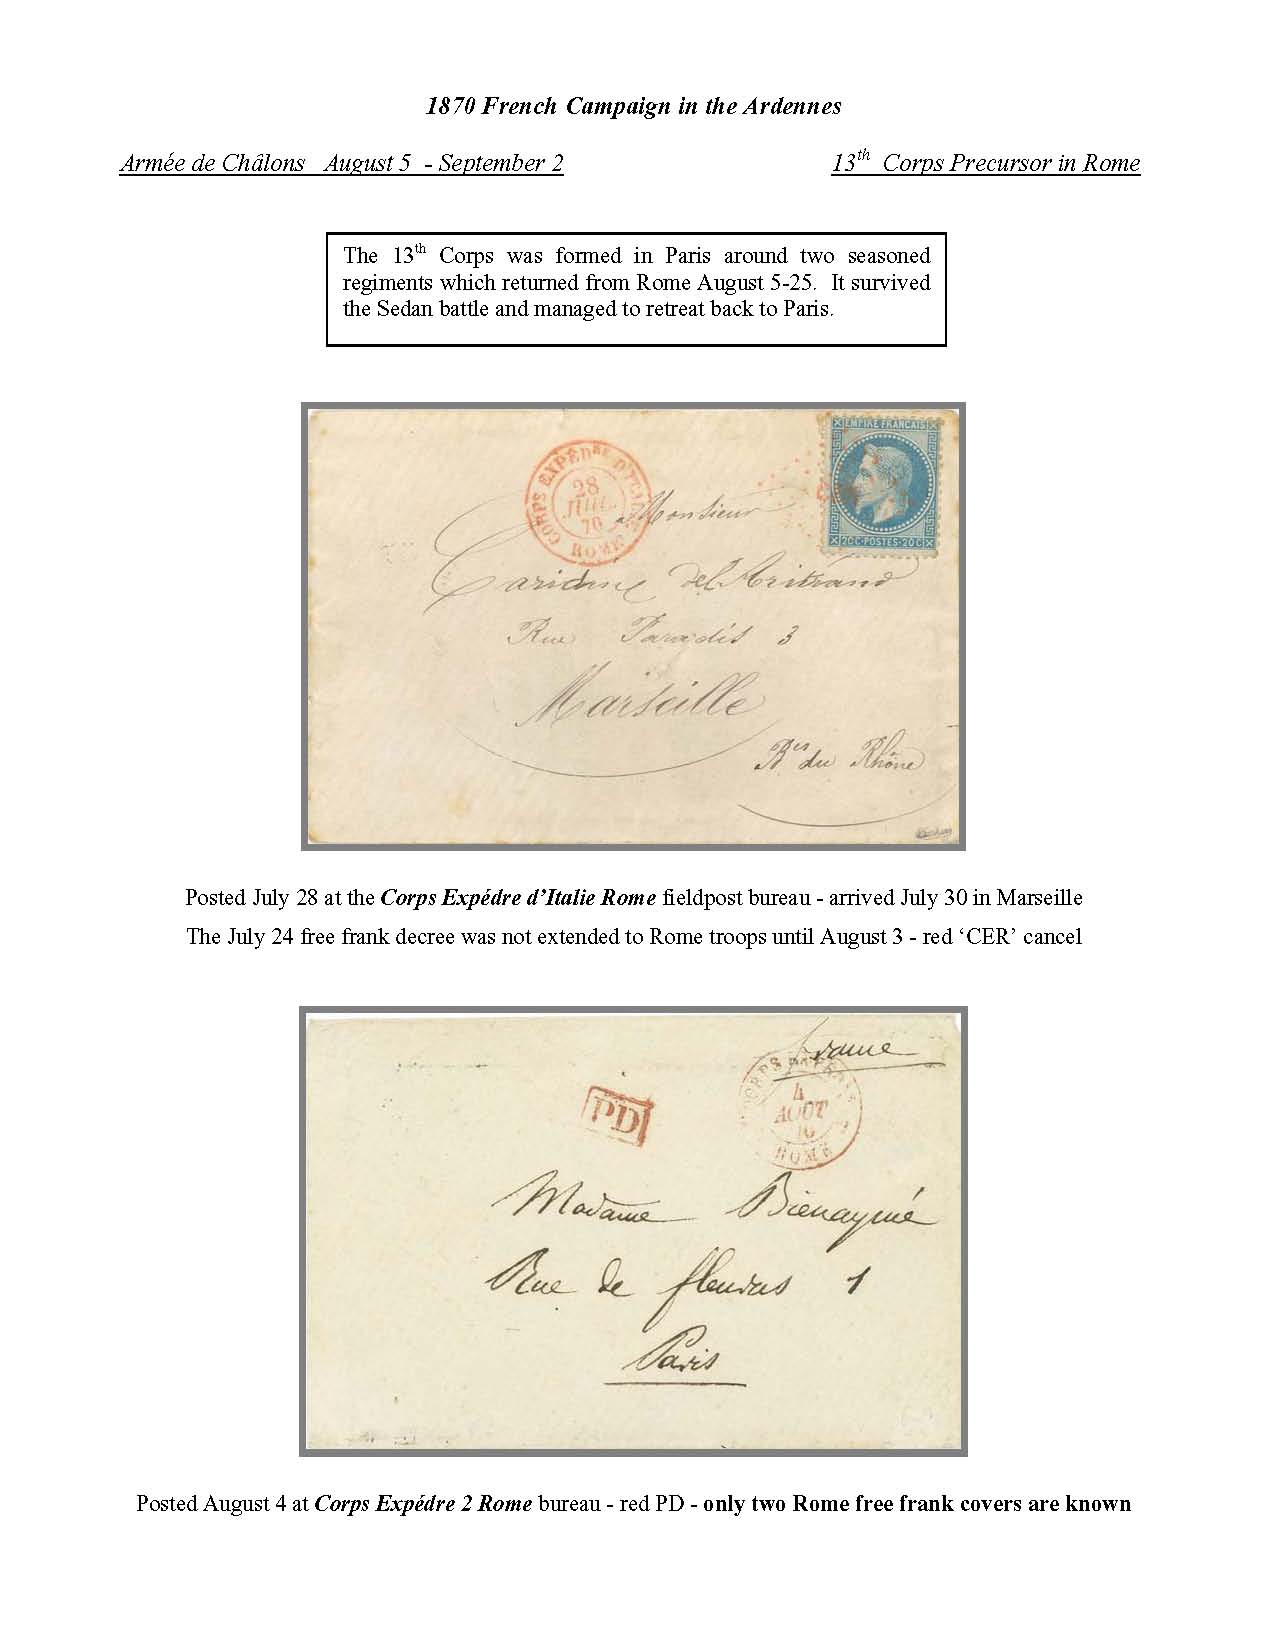 1870 French Campaign in the Ardennes
Armée de Châlons August 5 - September 2
13th Corps Precursor in Rome
The 13th Corps was formed in Paris around two seasoned
regiments which returned from Rome August 5-25. It survived
the Sedan battle and managed to retreat back to Paris.
CORPS EXPÉDRE D'ITALIE
28
JUIL.
70
ROME
EMPIRE FRANCAIS
20C·POSTES·20C
Monsieur
Rue Paradis 3
Marseille
Bes du Rhône
Posted July 28 at the Corps Expédre d'Italie Rome fieldpost bureau - arrived July 30 in Marseille
The July 24 free frank decree was not extended to Rome troops until August 3 - red 'CER' cancel
France
CORPS
4
AOUT
ROME
PD
Madame Bienaymé
Rue de fleurus 1
Paris
Posted August 4 at Corps Expédre 2 Rome bureau - red PD - only two Rome free frank covers are known